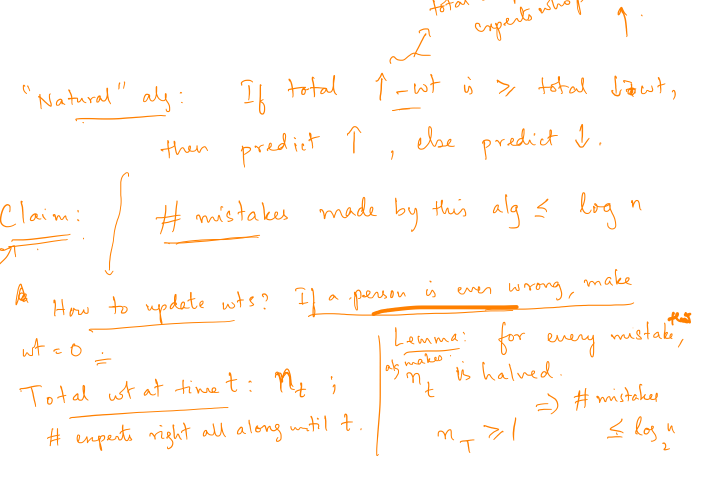 total
experts who ↑.
"Natural" alg: If total ↑-wt is ≥ total ↓-wt,
then predict ↑, else predict ↓.
Claim: # mistakes made by this alg ≤ log n
How to update wts? If a person is ever wrong, make
wt = 0.
Total wt at time t: n_t ;
# experts right all along until t.
Lemma: for every mistake, that
alg makes, n_t is halved.
⇒ # mistakes
n_T ≥ 1 ≤ log_2 n